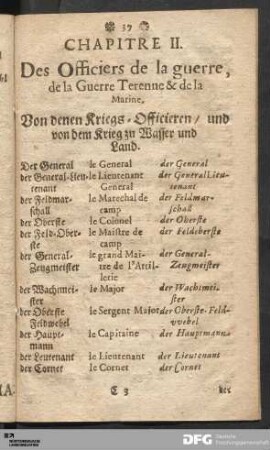 37
CHAPITRE II.
Des Officiers de la guerre,
de la Guerre Terenne & de la
Marine,
Von denen Kriegs-Officieren / und
von dem Krieg zu Wasser und
Land.
Der General le General der General
der General-Lieu- le Lieutenant der General Lieu-
tenant General tenant
der Feldmar- le Marechal de der Feldmar-
schall camp schall
der Oberste le Colonel der Oberste
der Feld-Ober- le Maistre de der Feldoberste
ste camp
der General- le grand Mai- der General-
Zeugmeister tre de l'Artil- Zeugmeister
lerie
der Wachtmei- le Major der Wachtmei-
ster ster
der Oberste le Sergent Maior der Oberste-Feld-
Feldwebel vvebel
der Haupt- le Capitaine der Hauptmann
mann
der Leutenant le Lieutenant der Lieutenant
der Cornet le Cornet der Cornet
C 3 der
DFG Deutsche
Forschungsgemeinschaft